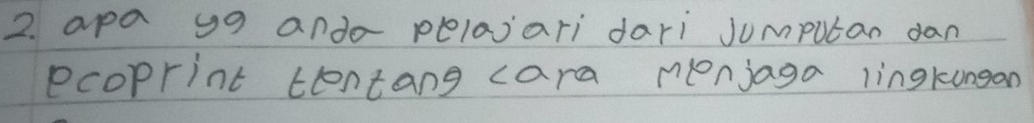 2. apa yg anda pelajari dari Jumputan dan
ecoprint tentang cara menjaga lingkungan